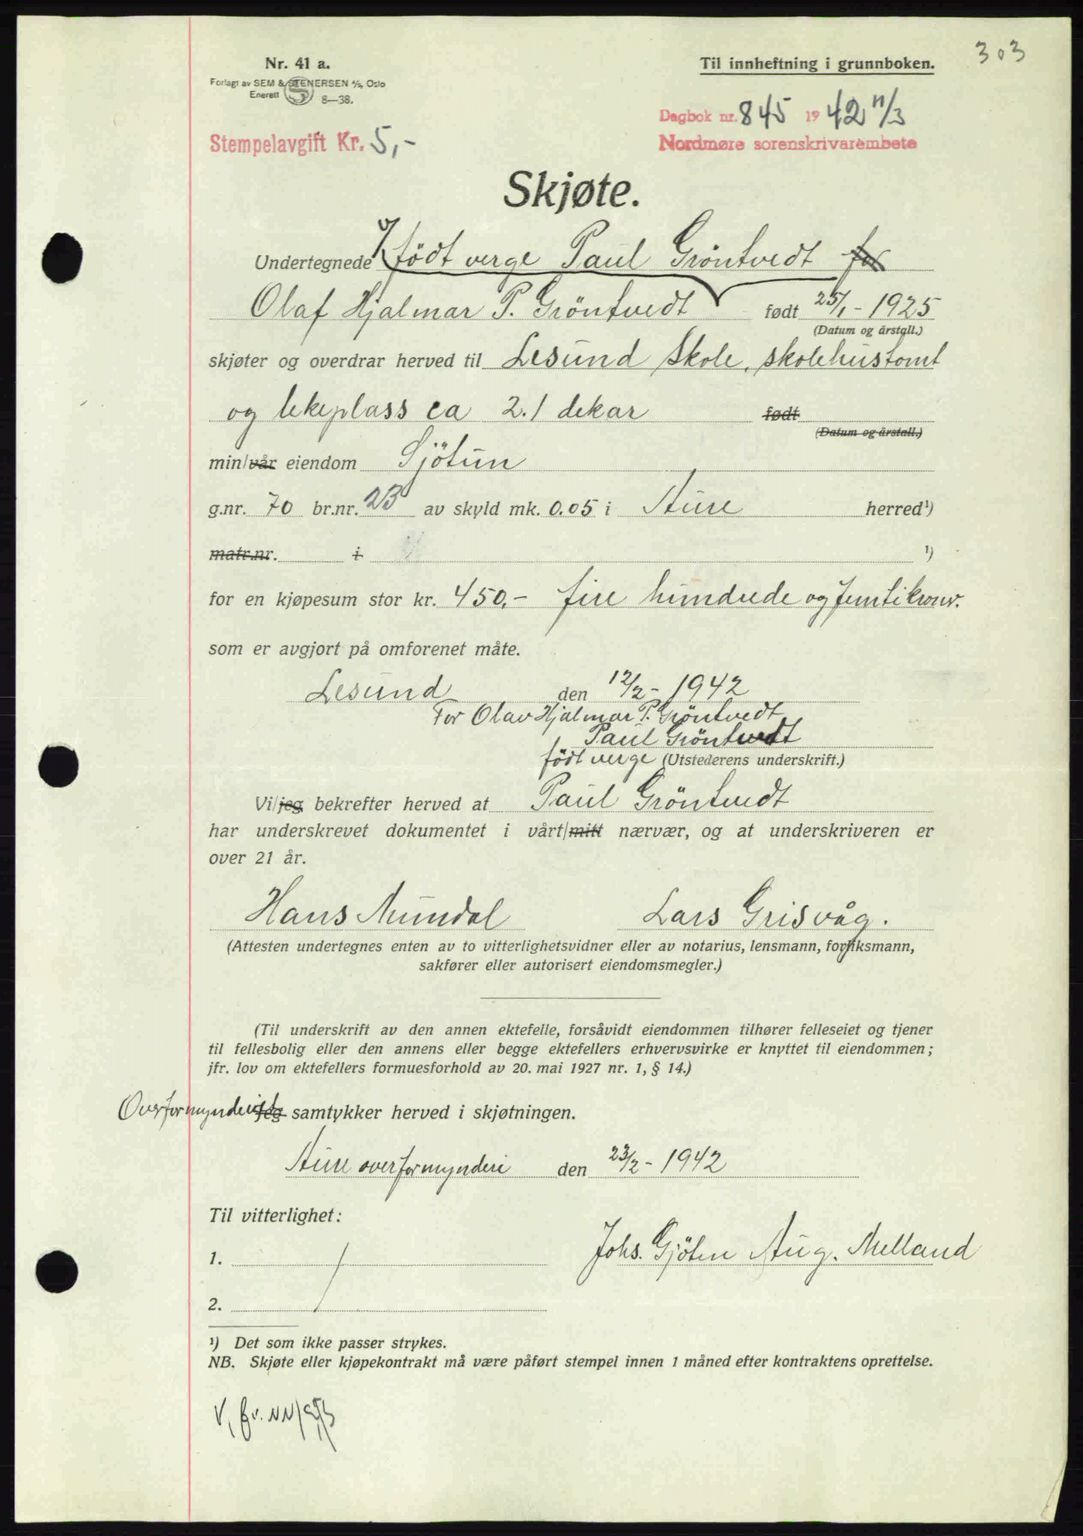 303
Nr. 41 a.
Forlagt av SEM & STENERSEN A/S, Oslo
Enerett 8—38.
Til innheftning i grunnboken.
Dagbok nr. 845 1942 11/3
Nordmøre sorenskrivarembete
Stempelavgift Kr. 5,-
Skjøte.
Undertegnede v/ født verge Paul Gröntvedt for
Olaf Hjalmar P. Gröntvedt født 25/1-1925
(Datum og årstall.)
skjøter og overdrar herved til Lesund Skole, skolehustomt
og lekeplass ca 2.1 dekar født
(Datum og årstall.)
min/vår eiendom Sjötun
g.nr. 70 br.nr. 23 av skyld mk. 0.05 i Aure herred¹)
matr.nr. i ¹)
for en kjøpesum stor kr. 450,- fire hundrede og femti kroner.
som er avgjort på omforenet måte.
Lesund den 12/2-1942
For Olav Hjalmar P. Gröntvedt
Paul Gröntvedt
født verge (Utstederens underskrift.)
Vi/jeg bekrefter herved at Paul Gröntvedt
har underskrevet dokumentet i vårt/mitt nærvær, og at underskriveren er
over 21 år.
Hans Mundal Lars Grisvåg.
(Attesten undertegnes enten av to vitterlighetsvidner eller av notarius, lensmann, forliksmann,
sakfører eller autorisert eiendomsmegler.)
(Til underskrift av den annen ektefelle, forsåvidt eiendommen tilhører felleseiet og tjener
til fellesbolig eller den annens eller begge ektefellers erhvervsvirke er knyttet til eiendommen;
jfr. lov om ektefellers formuesforhold av 20. mai 1927 nr. 1, § 14.)
Overformynderiet Jeg samtykker herved i skjøtningen.
Aure overformynderi den 23/2-1942
Til vitterlighet:
Johs. Gjöten Aug. Melland
1.
2.
¹) Det som ikke passer strykes.
NB. Skjøte eller kjøpekontrakt må være påført stempel innen 1 måned efter kontraktens oprettelse.